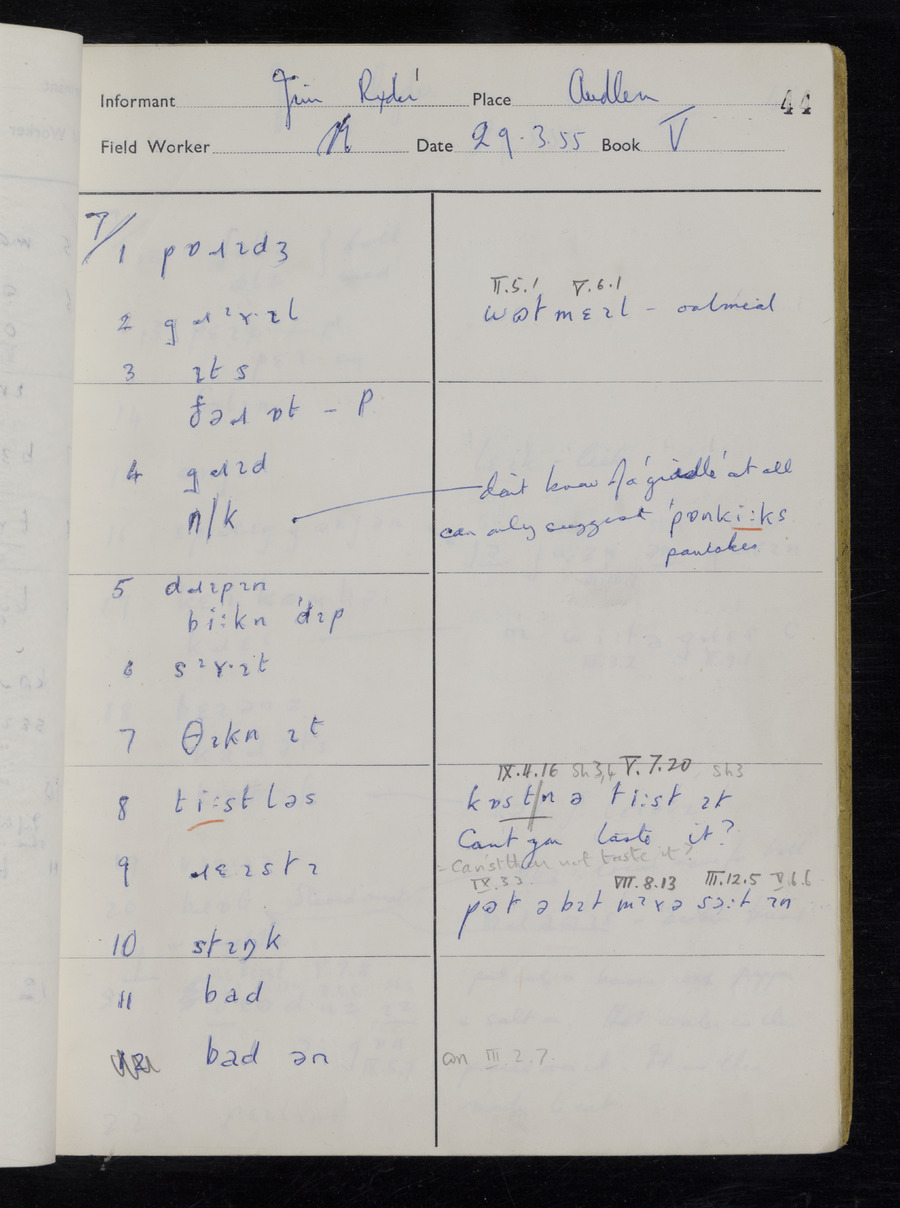 Informant Jim Ryder Place Audlem 44
Field Worker Date 29.3.55 Book V
7/
1 pɒɹɪdʒ
II.5.1 V.6.1
wətmɛɪl – oatmeal
2
3 ɪts
fəɹ ɒt – P
4 gɹɪd
n/k
don't know of a 'griddle' at all
can only suggest 'pɒnki:ks
pancakes
5 dɹɪpɪn
bi:kn 'dɪp
6 sᶦɣ·ɪt
7 θɪkn ɪt
IX.4.16 Sh3,4 V.7.20 Sh3
8 ti:stləs
kɒst/n ə ti:st ɪt
Can't you taste it?
= Can'st thou not taste it?
9 ɹɛɪstɪ
IX.3.3. VII.8.13 III.12.5 V.6.6
pət ə bɪt mᶦɣə sɔ:t ɪn
10 stɪŋk
11 bad
bad ən
ən III.2.7.